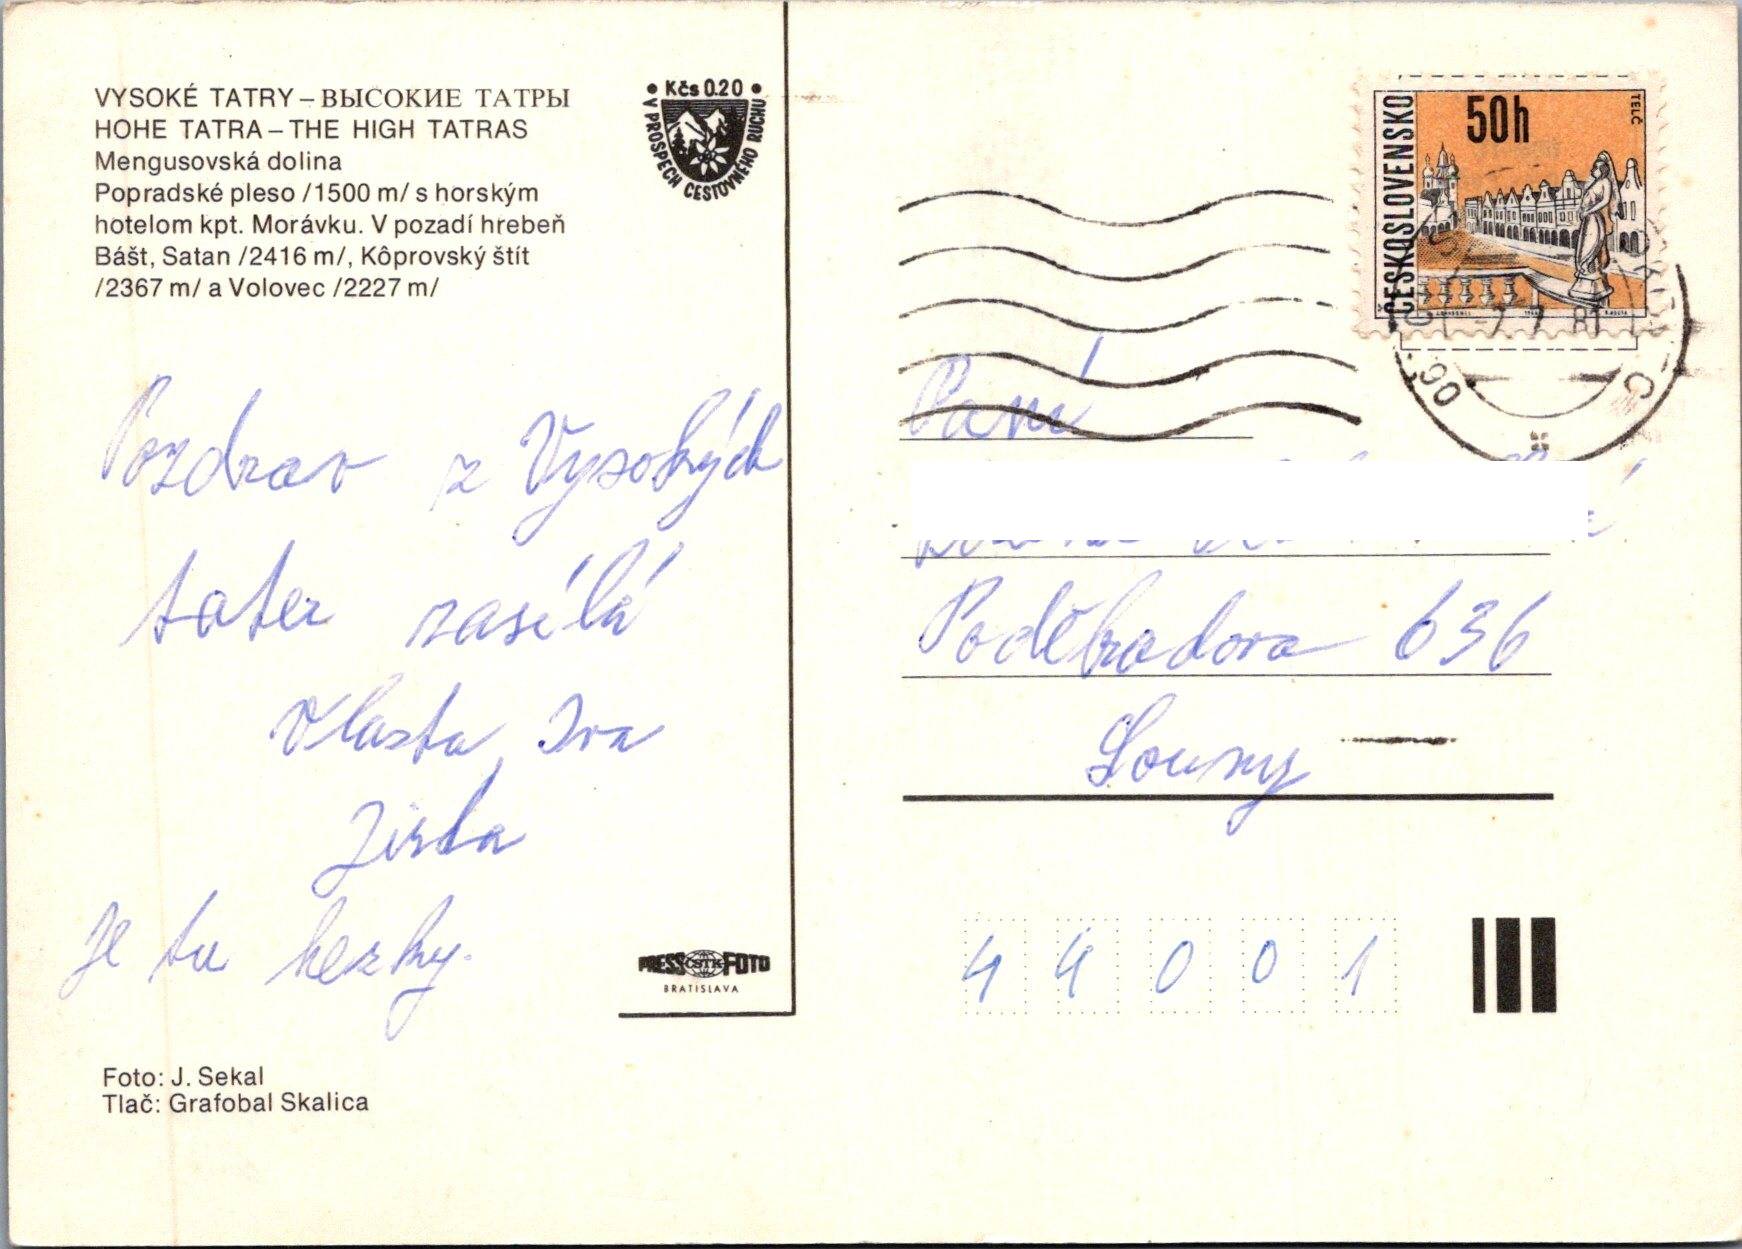 VYSOKÉ TATRY – ВЫСОКИЕ ТАТРЫ
HOHE TATRA – THE HIGH TATRAS
Mengusovská dolina
Popradské pleso /1500 m/ s horským
hotelom kpt. Morávku. V pozadí hrebeň
Bášt, Satan /2416 m/, Kôprovský štít
/2367 m/ a Volovec /2227 m/
• Kčs 0.20 •
V PROSPECH CESTOVNÉHO RUCHU
Pozdrav z Vysokých
tater zasílá
Vlasta, Iva
Jirka
Je tu hezky.
PRESS ČSTK FOTO
BRATISLAVA
Foto: J. Sekal
Tlač: Grafobal Skalica
ČESKOSLOVENSKO
50h
TELČ
-7.7.81
Paní
Poděbradova 636
Louny
44001